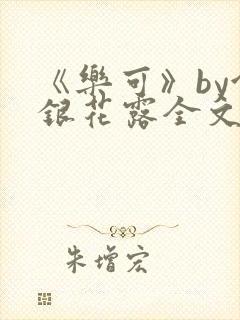 《樂可》by
銀花露全文
朱增宏